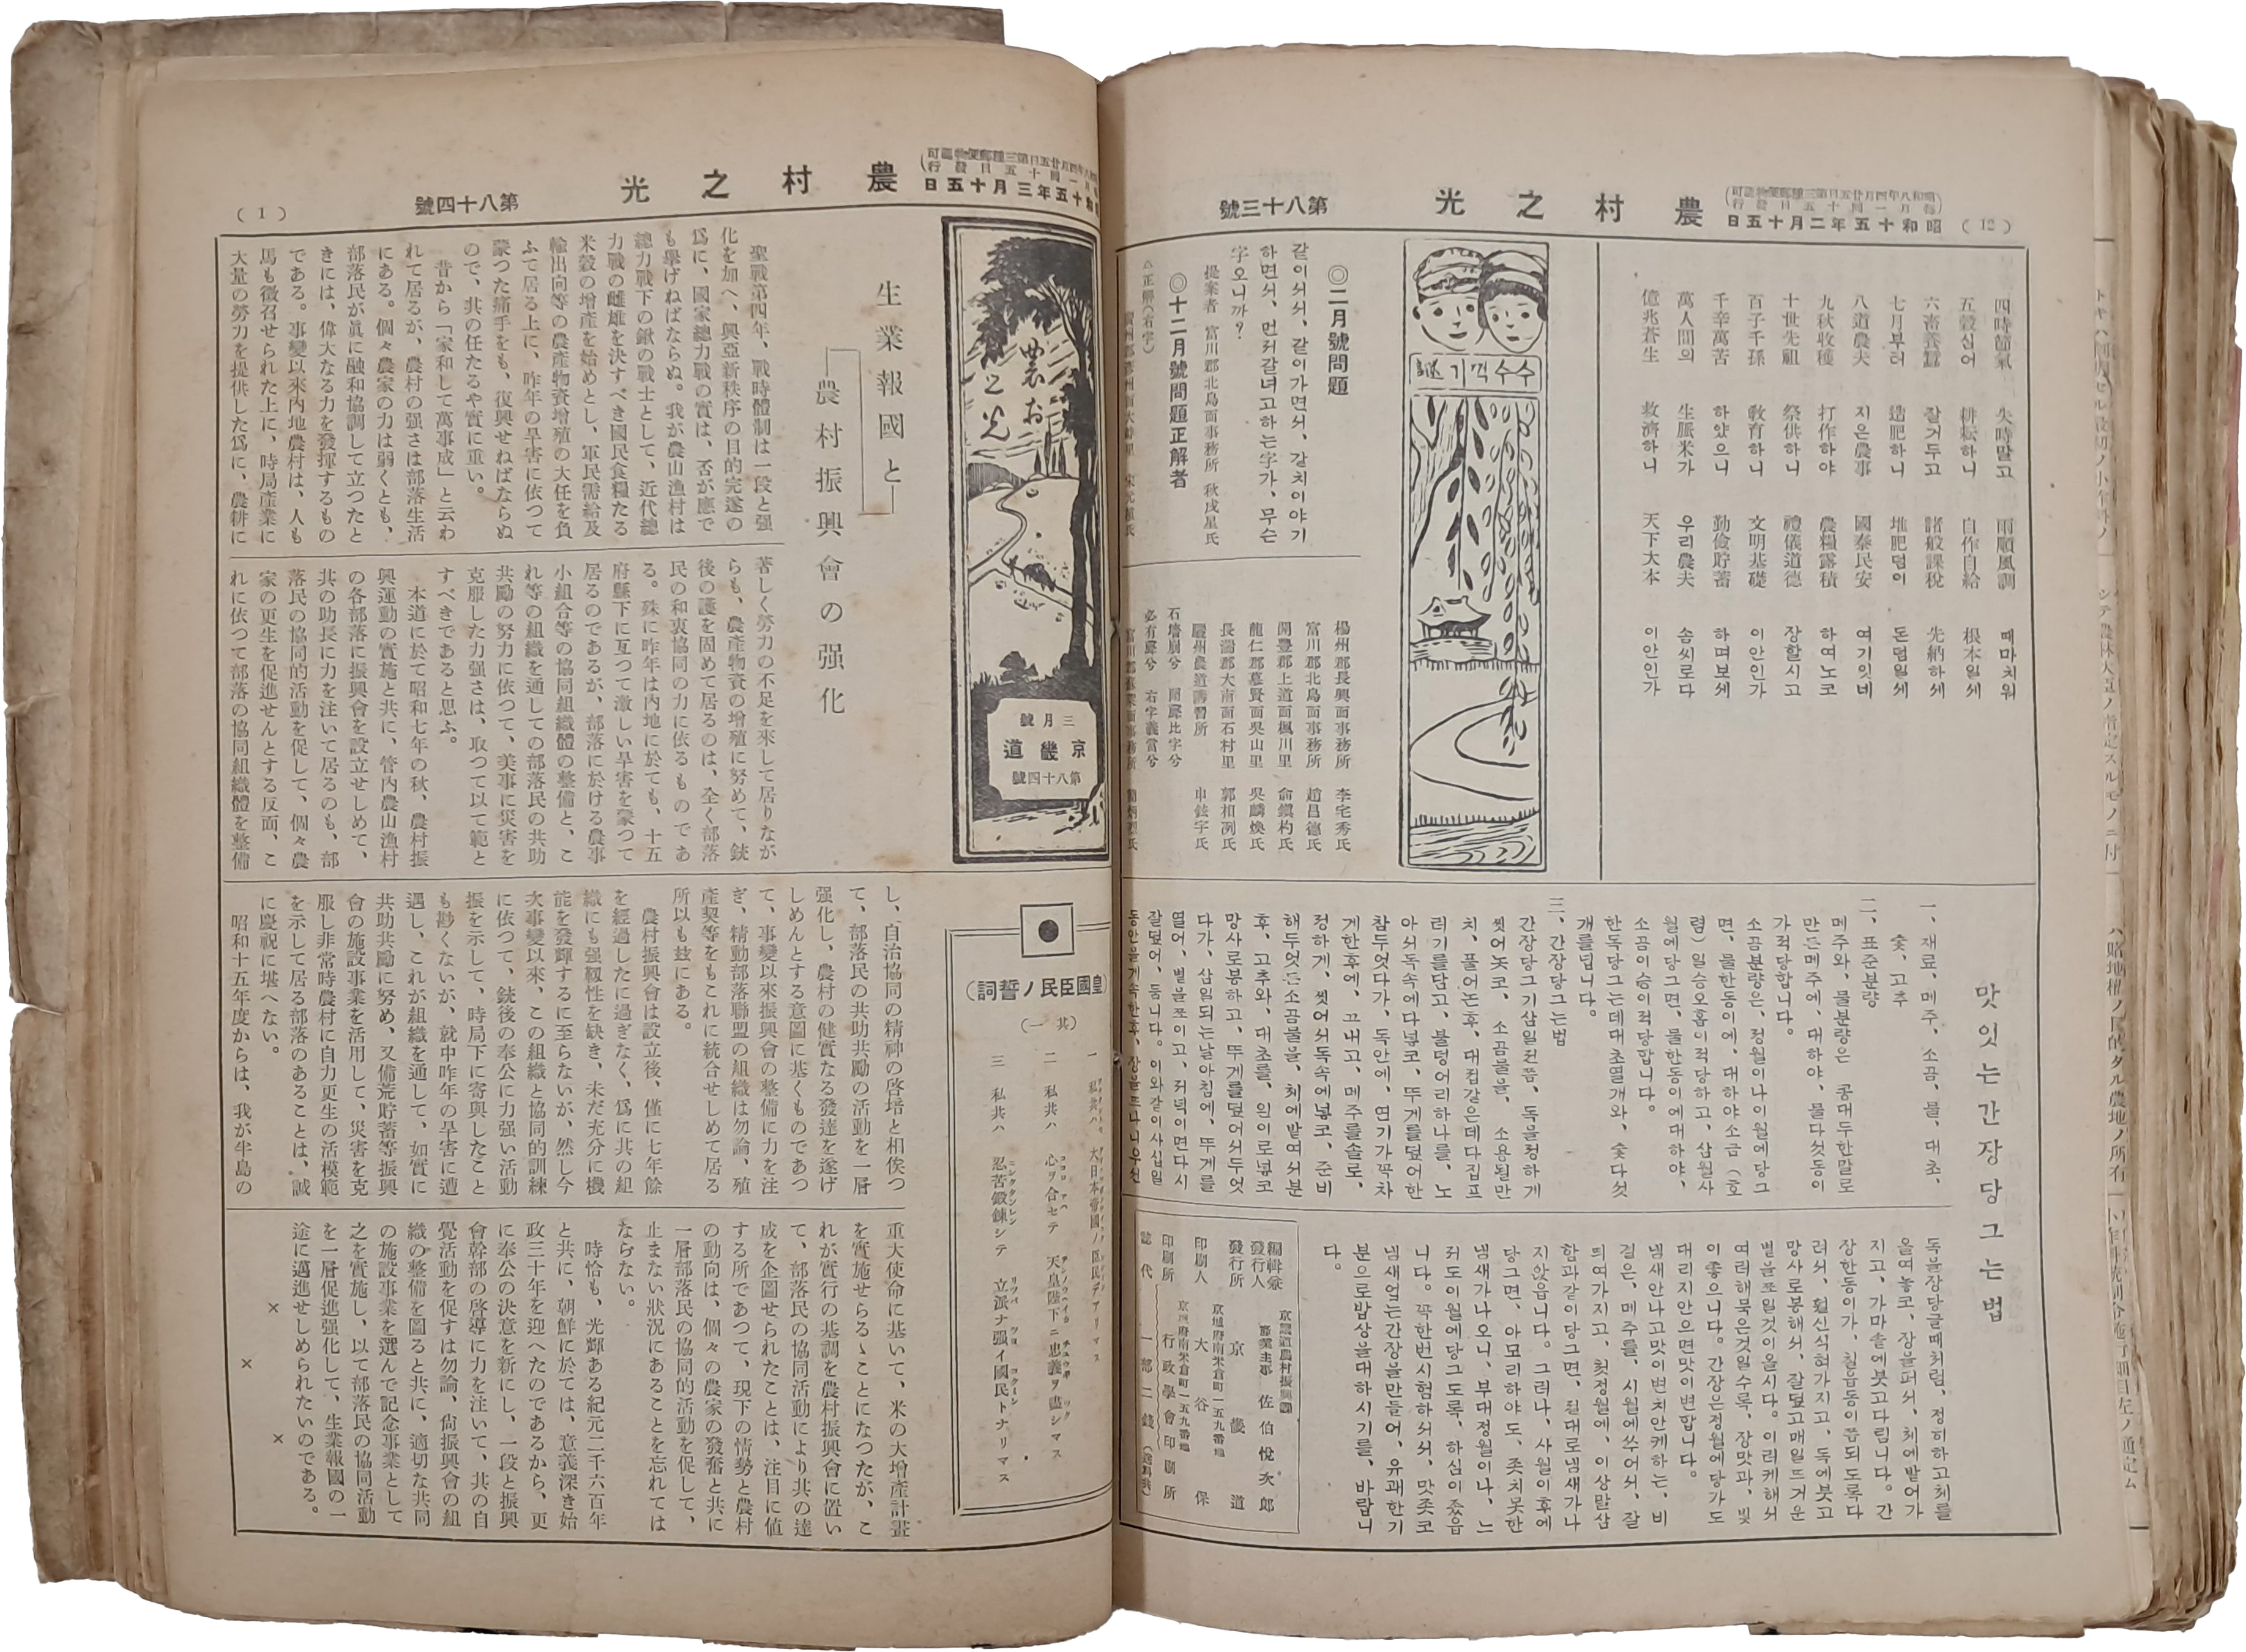 (12)
昭和八年四月廿五日第三種郵便物認可
毎月一回十五日發行
昭和十五年二月十五日
農村之光
第八十三號
四時節氣 失時말고 雨順風調 때마치워
五穀심어 耕耘하니 自作自給 根本일쎄
六畜養蠶 잘거두고 諸般課稅 先納하세
七月부터 造肥하니 堆肥덤이 돈덤일세
八道農夫 지은農事 國泰民安 여기잇네
九秋收穫 打作하야 農糧露積 하여노코
十世先祖 祭供하니 禮儀道德 장할시고
百子千孫 敎育하니 文明基礎 이안인가
千辛萬苦 하얏으니 勤儉貯蓄 하며보세
萬人間의 生脈米가 우리農夫 솜씨로다
億兆蒼生 救濟하니 天下大本 이안인가
수수꺽기
◎二月號問題
같이쉬쉬, 같이가면쉬, 갈치이야기
하면쉬, 먼저갈녀고하는字가, 무슨
字오니까?
提案者 富川郡北島面事務所 秋戌星氏
◎十二月號問題正解者
△正解(若字)
楊州郡長興面事務所 李宅秀氏
富川郡北島面事務所 趙昌德氏
開豐郡上道面楓川里 俞鎭杓氏
龍仁郡慕賢面吳山里 吳麟煥氏
長湍郡大南面石村里 郭相冽氏
驪州農道講習所 申鉉宇氏
石墻崩兮 聞犀比字兮
必有聲兮 右字義當兮
맛잇는간장당그는법
一、재료, 메주, 소곰, 물, 대초,
숯, 고추
二、표준분량
메주와, 물분량은 콩대두한말로
만든메주에, 대하야, 물다섯동이
가적당합니다。
소곰분량은, 정월이나이월에당그
면, 물한동이에, 대하야소곰(호
렴)일승오홉이적당하고, 삼월사
월에당그면, 물한동이에대하야,
소곰이승이적당합니다。
한독당그는데대초열개와, 숯다섯
개를넙니다。
三、간장당그는법
간장당그기삼일전쯤, 독을정하게
씻어놋코, 소곰물을, 소용될만
치, 풀어논후, 대접같은데다집프
러기를담고, 불덩어리하나를, 노
아쉬독속에다넣코, 뚜게를덮어한
참두엇다가, 독안에, 연기가꼭차
게한후에, 끄내고, 메주를솔로,
정하게, 씻어쉬독속에넣코, 준비
해두엇든소곰물을, 체에밭여쉬분
후, 고추와, 대초를, 읜이로넣코
망사로봉하고, 뚜게를덮어쉬두엇
다가, 삼일되는날아침에, 뚜게를
열어, 볕을쪼이고, 저녁이면다시
잘덮어, 둡니다。이와같이사십일
동안을게속한후, 장을뜨나니우선
독을장당글때처럼, 정히하고체를
올여놓코, 장을퍼쉬, 체에밭어가
지고, 가마솥에붓고다립니다。간
장한동이가, 칠읍동이쯤되도록다
려쉬, 훨신식혀가지고, 독에붓고
망사로봉해쉬, 잘덮고매일뜨거운
볕을쪼일것이올시다。이러케해쉬
여러해묵은것일수록, 장맛과, 빛
이좋으니다。간장은정월에당가도
대리지안으면맛이변합니다。
냄새안나고맛이변치안케하는, 비
결은, 메주를, 시월에쑤어쉬, 잘
띄여가지고, 첫정월에, 이상말삼
함과같이당그면, 절대로냄새가나
지않읍니다。그러나, 사월이후에
당그면, 아모리하야도, 좃치못한
냄새가나오니, 부대정월이나, 느
저도이월에당그도록, 하심이좋읍
니다。꼭한번시험하쉬쉬, 맛좃코
냄새업는간장을만들어, 유쾌한기
분으로밥상을대하시기를, 바랍니
다。
京畿道農村振興課
編輯兼發行人 產業主事 佐伯悅次郎
發行所 京畿道
京城府南米倉町一五九番地
印刷人 大谷保
京城府南米倉町一五九番地
印刷所 行政學會印刷所
誌代 一部二錢
昭和十五年三月十五日
農村之光
第八十四號
(1)
農村之光
三月號
京畿道
第八十四號
生業報國と
農村振興會の强化
聖戰第四年、戰時體制は一段と强
化を加へ、興亞新秩序の目的完遂の
爲に、國家總力戰の實は、否が應で
も擧げねばならぬ。我が農山漁村は
總力戰下の鍬の戰士として、近代總
力戰の雌雄を決すべき國民食糧たる
米穀の增產を始めとし、軍民需給及
輸出向等の農產物資增殖の大任を負
ふて居る上に、昨年の旱害に依つて
蒙つた痛手をも、復興せねばならぬ
ので、其の任たるや實に重い。
昔から「家和して萬事成」と云わ
れて居るが、農村の强さは部落生活
にある。個々農家の力は弱くとも、
部落民が眞に融和協調して立つたと
きには、偉大なる力を發揮するもの
である。事變以來內地農村は、人も
馬も徵召せられた上に、時局產業に
大量の勞力を提供した爲に、農耕に
著しく勞力の不足を來して居りなが
らも、農產物資の增殖に努めて、銃
後の護を固めて居るのは、全く部落
民の和衷協同の力に依るものであ
る。殊に昨年は內地に於ても、十五
府縣下に亙つて激しい旱害を蒙つて
居るのであるが、部落に於ける農事
小組合等の協同組織體の整備と、こ
れ等の組織を通しての部落民の共助
共勵の努力に依つて、美事に災害を
克服した力强さは、取つて以て範と
すべきであると思ふ。
本道に於て昭和七年の秋、農村振
興運動の實施と共に、管內農山漁村
の各部落に振興會を設立せしめて、
共の助長に力を注いで居るのも、部
落民の協同的活動を促して、個々農
家の更生を促進せんとする反面、こ
れに依つて部落の協同組織體を整備
し、自治協同の精神の啓培と相俟つ
て、部落民の共助共勵の活動を一層
强化し、農村の健實なる發達を遂げ
しめんとする意圖に基くものであつ
て、事變以來振興會の整備に力を注
ぎ、精動部落聯盟の組織は勿論、殖
產契等をもこれに統合せしめて居る
所以も玆にある。
農村振興會は設立後、僅に七年餘
を經過したに過ぎなく、爲に共の組
織にも强靱性を缺き、未だ充分に機
能を發輝するに至らないが、然し今
次事變以來、この組織と協同的訓練
に依つて、銃後の奉公に力强い活動
振を示して、時局下に寄與したこと
も尠くないが、就中昨年の旱害に遭
遇し、これが組織を通して、如實に
共助共勵に努め、又備荒貯蓄等振興
會の施設事業を活用して、災害を克
服し非常時農村に自力更生の活模範
を示して居る部落のあることは、誠
に慶祝に堪へない。
昭和十五年度からは、我が半島の
重大使命に基いて、米の大增產計畫
を實施せらるゝことになつたが、こ
れが實行の基調を農村振興會に置い
て、部落民の協同活動により共の達
成を企圖せられたことは、注目に値
する所であつて、現下の情勢と農村
の動向は、個々の農家の發奮と共に
一層部落民の協同的活動を促して、
止まない狀況にあることを忘れては
ならない。
時恰も、光輝ある紀元二千六百年
と共に、朝鮮に於ては、意義深き始
政三十年を迎へたのであるから、更
に奉公の決意を新にし、一段と振興
會幹部の啓導に力を注いで、共の自
覺活動を促すは勿論、尙振興會の組
織の整備を圖ると共に、適切な共同
の施設事業を選んで記念事業として
之を實施し、以て部落民の協同活動
を一層促進强化して、生業報國の一
途に邁進せしめられたいのである。
× × ×
(皇國臣民ノ誓詞)
(其一)
一 私共ハ 大日本帝國ノ臣民デアリマス
二 私共ハ 心ヲ合セテ 天皇陛下ニ忠義ヲ盡シマス
三 私共ハ 忍苦鍛鍊シテ 立派ナ强イ國民トナリマス